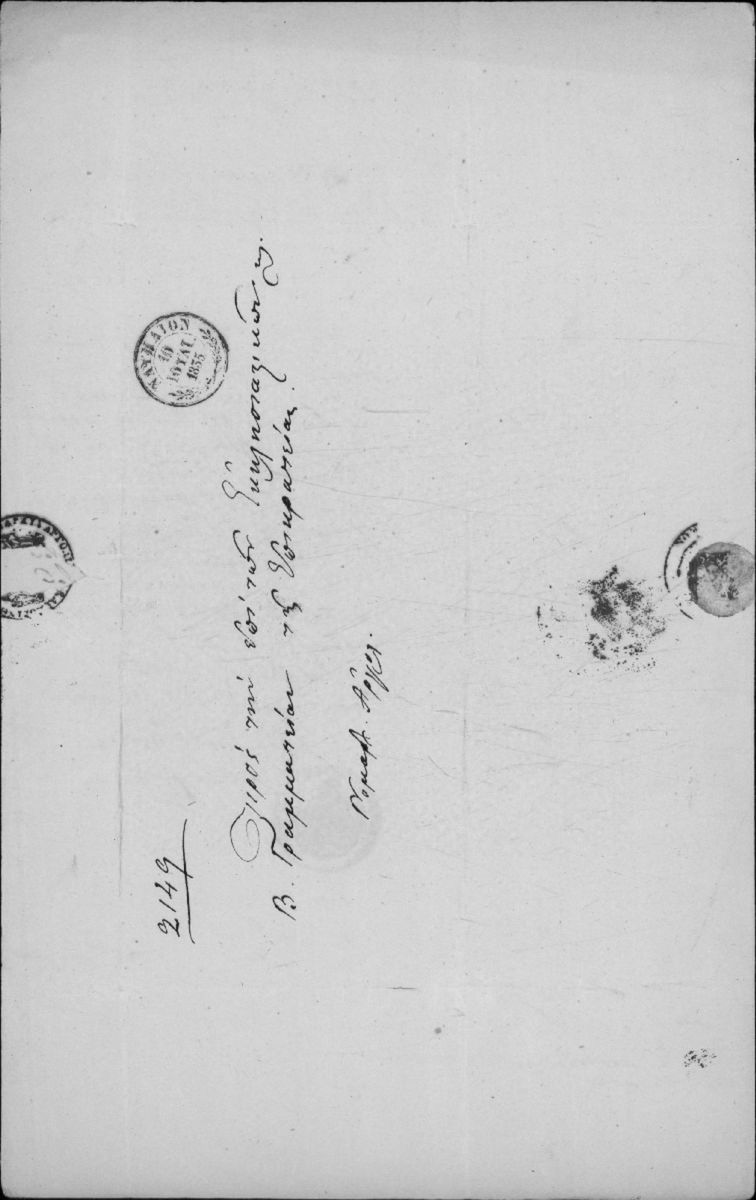 2149
Πρὸς τὴν ἐπὶ τῶν Ἐκκλησιαστικῶν κλ.
Β. Γραμματείαν τῆς Ἐπικρατείας.
Νομαρ. Ἀργολ.
ΝΑΥΠΛΙΟΝ
10
ΙΟΥΛΙ
1835